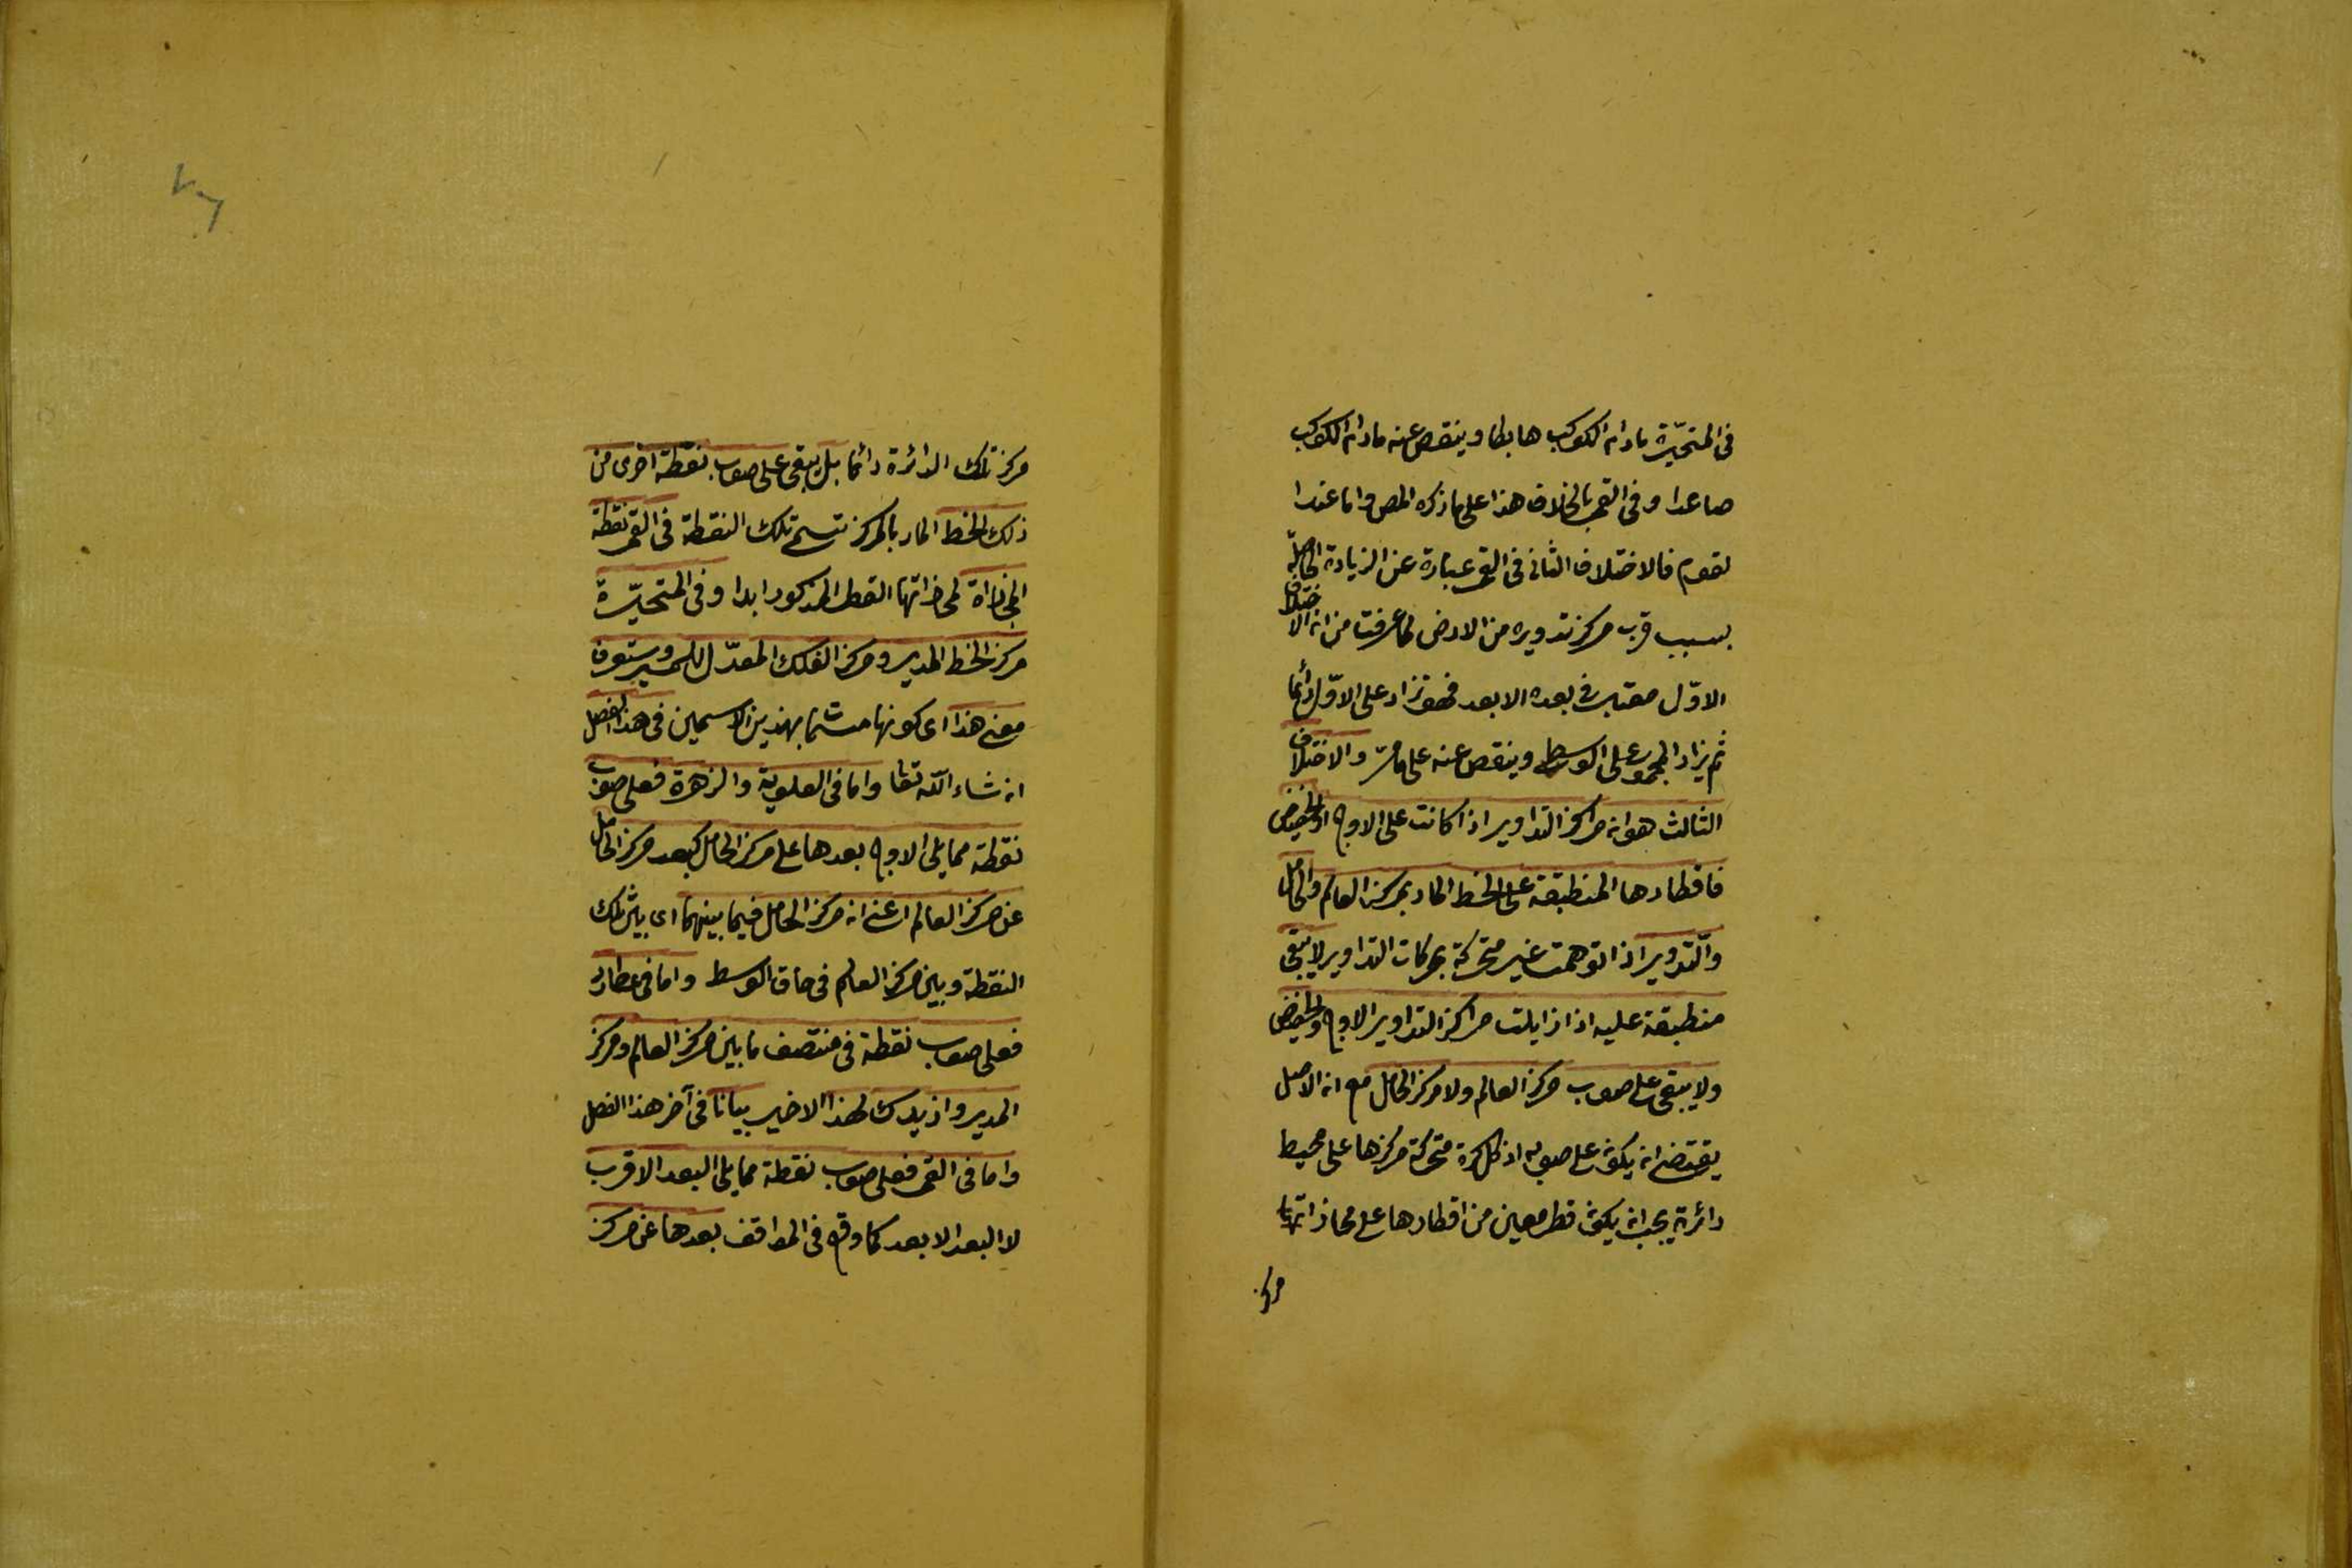 فى المتحيّرة مادام الكوكب هابطا وينقص عنه مادام الكوكب
صاعدا وفى القمر بالخلاف هذا على ما ذكره المص واما عند
القوم فالاختلاف الثانى فى القمر عبارة عن الزيادة الحاصلة
بسبب قرب مركز تدويره من الارض لما عرفت من ان الاختلاف
الاوّل معتبر فى بعده الابعد فهو تزاد على الاوّل دائما
ثم يزاد المجموع على الوسط وينقص عنه على ما مرّ والاختلاف
الثالث هو ان مراكز التداوير اذا كانت على الاوج او الحضيض
فاقطارها المنطبقة على الخط المار بمركز العالم والحامل
والتدوير اذا توهمت غير متحركة بحركات التداوير لا يبقى
منطبقة عليه اذا زايلت مراكز التداوير الاوج والحضيض
ولا يبقى على صوب مركز العالم ولا مركز الحامل مع ان الاصل
يقتضى ان يكون على صوبه اذ كل كرة متحركة مركزها على محيط
دائرة يجب ان يكون قطر معين من اقطارها على محاذاتها
مركز
مركز تلك الدائرة دائما بل يبقى على صوب نقطة اخرى من
ذلك الخط المار بالمركز تسمى تلك النقطة فى القمر نقطة
المحاذاة لمحاذاتها القطر المذكور ابدا وفى المتحيّرة
مركز الخط المدير ومركز الفلك المعدّل للمسير وستعرف
معنى هذا اى كونها مسمّاة بهذين الاسمين فى هذا الفصل
ان شاء الله تعا واما فى العلوية والزهرة فعلى صوب
نقطة مما يلى الاوج بعدها على مركز الحامل كبعد مركز الحامل
عن مركز العالم اعنى ان مركز الحامل فيما بينهما اى بين تلك
النقطة وبين مركز العالم فى حاق الوسط واما فى عطارد
فعلى صوب نقطة فى منتصف ما بين مركز العالم ومركز
المدير وازيدك لهذا الاخير بيانا فى آخر هذا الفصل
واما فى القمر فعلى صوب نقطة مما يلى البعد الاقرب
لا البعد الابعد كما وقع فى المواقف بعدها عن مركز